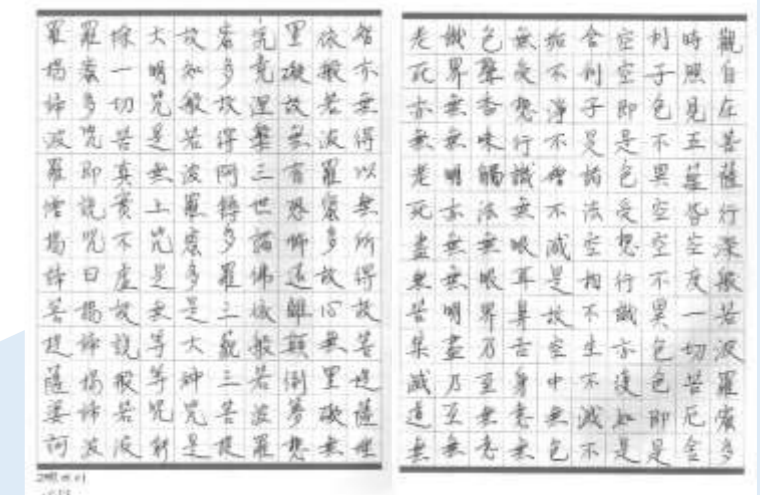 觀自在菩薩行深般若波羅蜜多
時照見五蘊皆空度一切苦厄舍
利子色不異空空不異色色即是
空空即是色受想行識亦復如是
舍利子是諸法空相不生不滅不
垢不淨不增不減是故空中無色
無受想行識無眼耳鼻舌身意無
色聲香味觸法無眼界乃至無意
識界無無明亦無無明盡乃至無
老死亦無老死盡無苦集滅道無
智亦無得以無所得故菩提薩埵
依般若波羅蜜多故心無罣礙無
罣礙故無有恐怖遠離顛倒夢想
究竟涅槃三世諸佛依般若波羅
蜜多故得阿耨多羅三藐三菩提
故知般若波羅蜜多是大神咒是
大明咒是無上咒是無等等咒能
除一切苦真實不虛故說般若波
羅蜜多咒即說咒曰揭諦揭諦波
羅揭諦波羅僧揭諦菩提薩婆訶